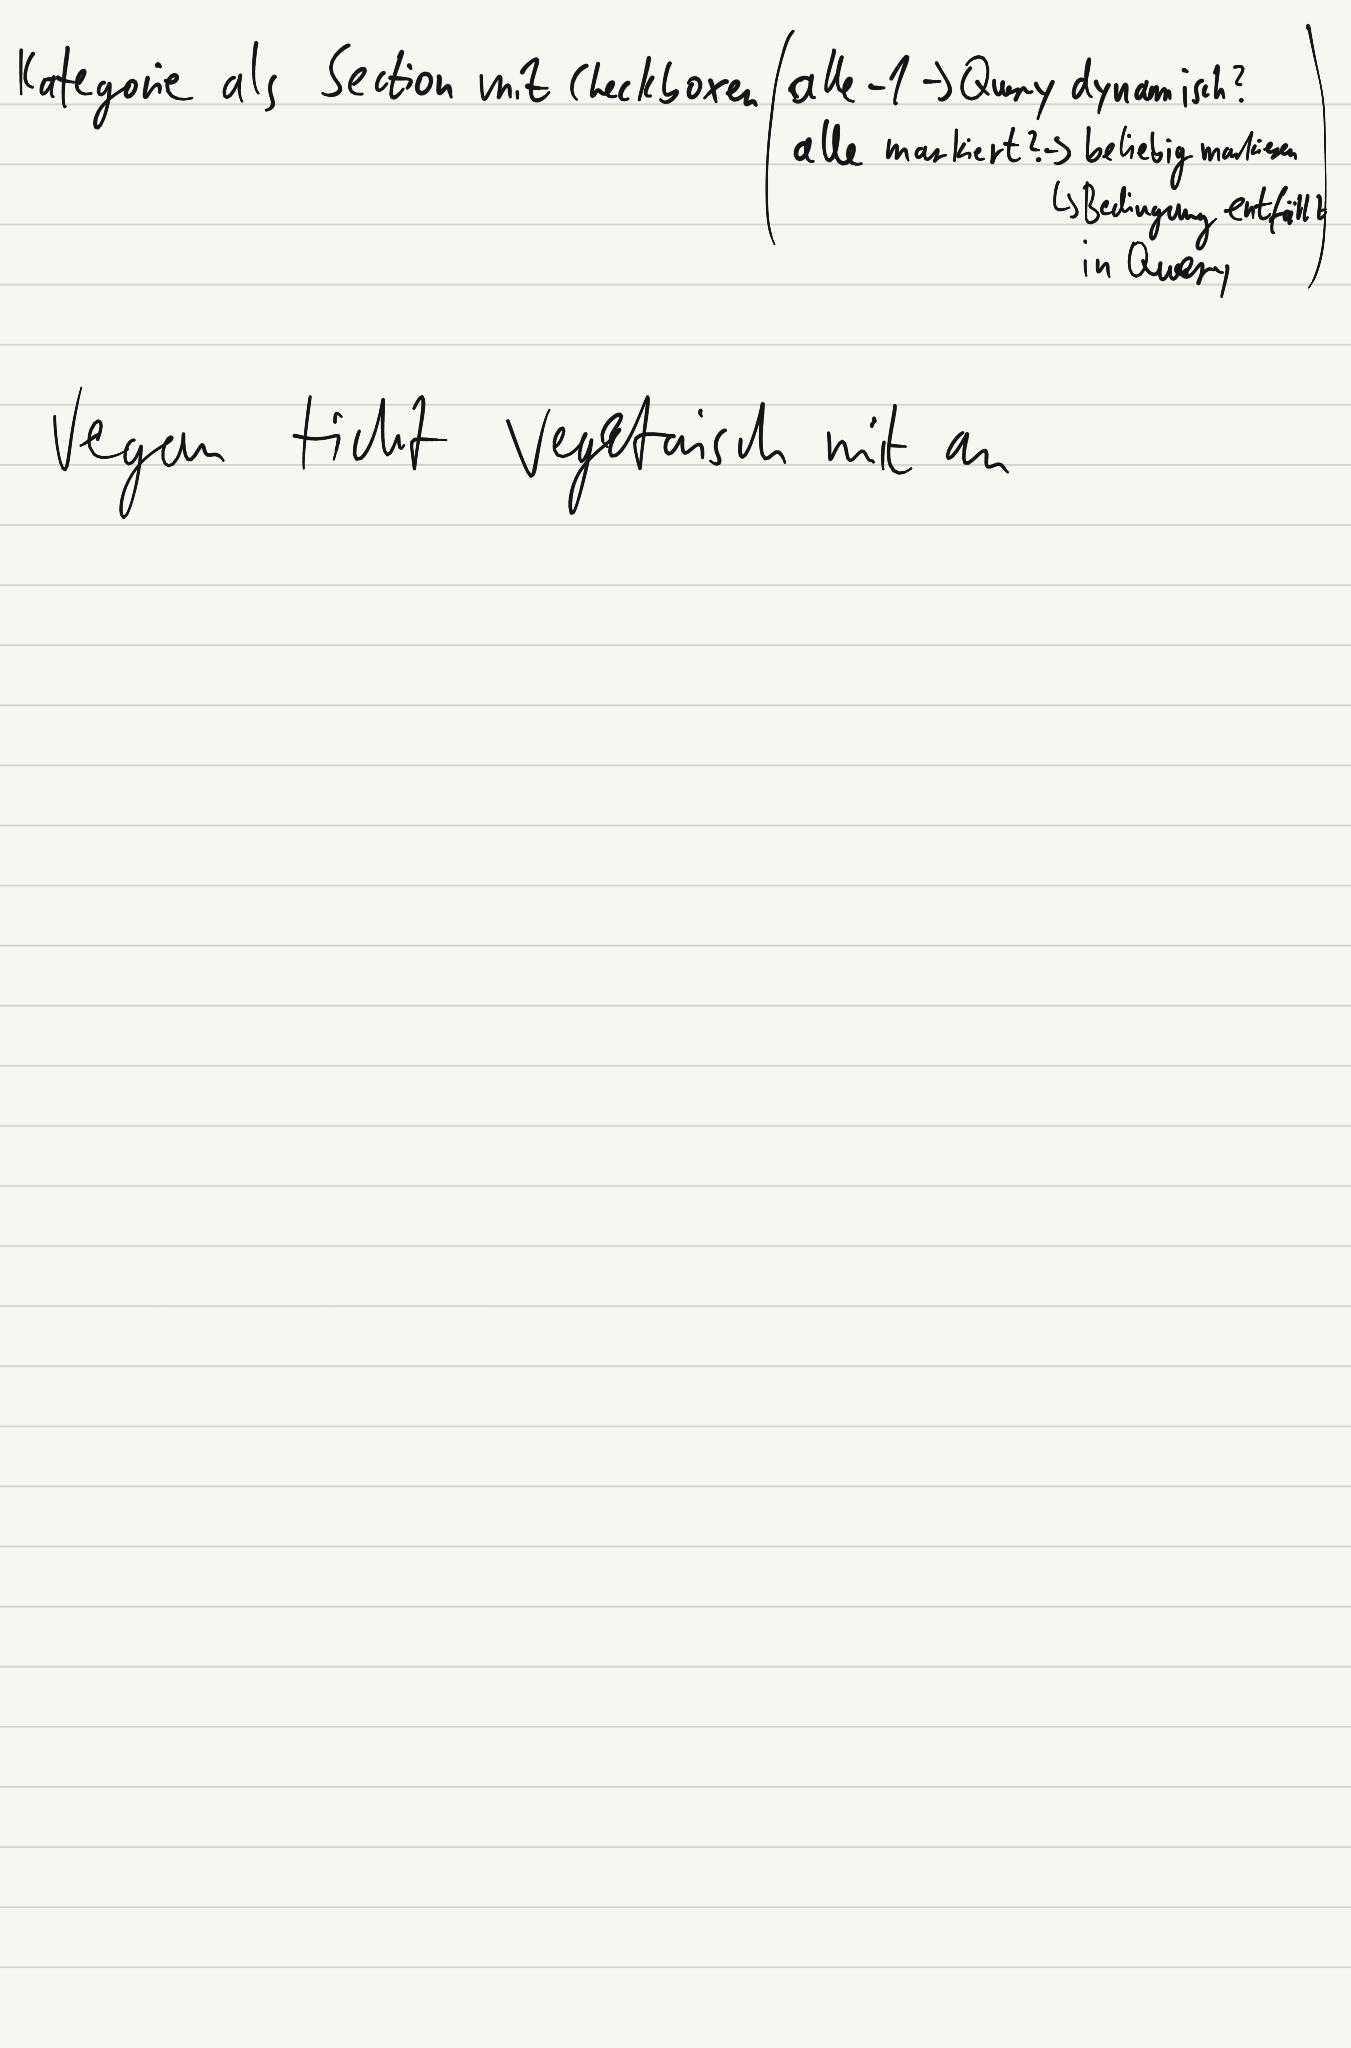 Kategorie als Section mit Checkboxen (alle -1 -> Query dynamisch?
alle markiert? -> beliebig markieren
↳ Bedingung entfällt
in Query)
Vegan tickt Vegetarisch mit an